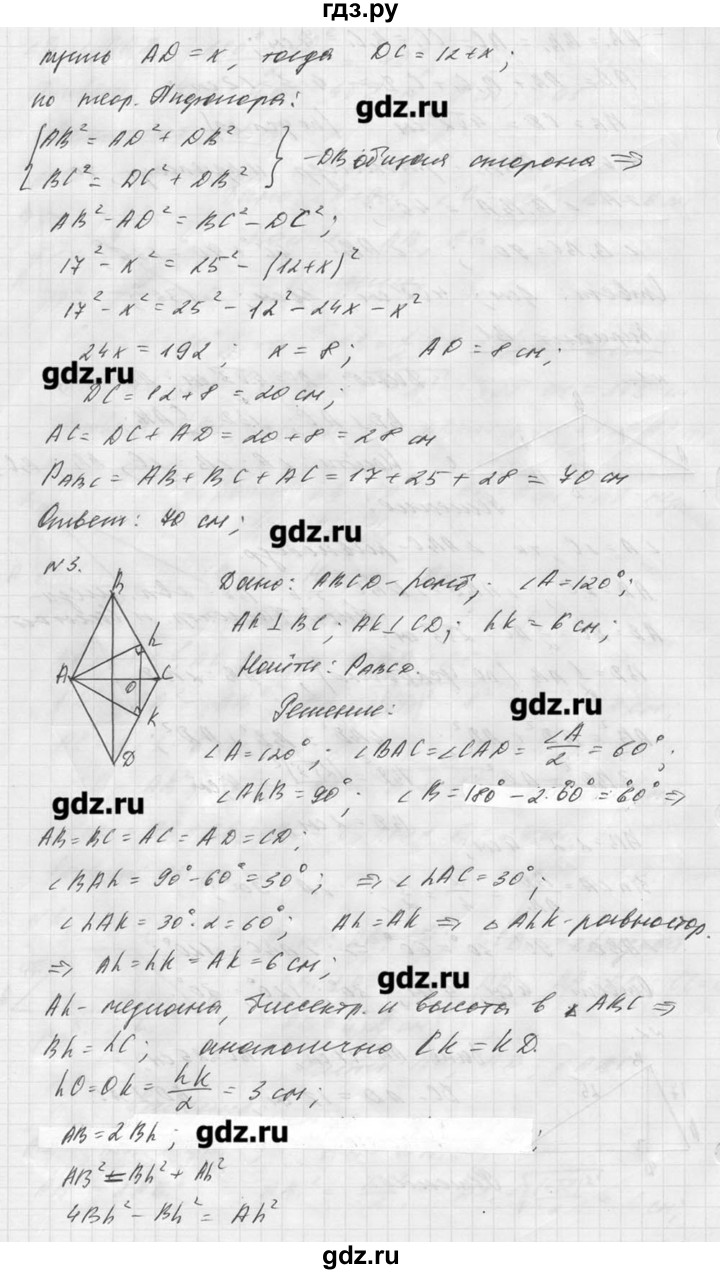 гдз.ру
пусть AD = x, тогда DC = 12+x;
по теор. Пифагора:
gdz.ru
{AB² = AD² + DB²
BC² = DC² + DB²} - DB общая сторона ⇒
AB² - AD² = BC² - DC²;
17² - x² = 25² - (12+x)²
17² - x² = 25² - 12² - 24x - x²
24x = 192; x = 8; AD = 8 см;
gdz.ru
DC = 12 + 8 = 20 см;
AC = DC + AD = 20 + 8 = 28 см
P_ABC = AB + BC + AC = 17 + 25 + 28 = 70 см
Ответ: 70 см;
gdz.ru
№3.
B
h
A
O
C
K
D
Дано: ABCD - ромб; ∠A = 120°;
Ah ⊥ BC; AK ⊥ CD; hK = 6 см;
Найти: P_ABCD.
gdz.ru
Решение:
∠A = 120°; ∠BAC = ∠CAD = ∠A/2 = 60°;
gdz.ru
∠AhB = 90°; ∠B = 180° - 2·60° = 60° ⇒
AB = BC = AC = AD = CD;
∠BAh = 90° - 60° = 30°; ⇒ ∠hAC = 30°;
∠hAK = 30°·2 = 60°; Ah = AK ⇒ △AhK - равностор.
⇒ Ah = hK = AK = 6 см;
gdz.ru
Ah - медиана, биссектр. и высота в △ABC ⇒
Bh = hC; аналогично CK = KD.
hO = OK = hK/2 = 3 см;
AB = 2Bh;
gdz.ru
;
AB² = Bh² + Ah²
4Bh² - Bh² = Ah²
gdz.ru